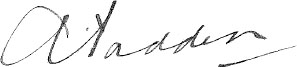 A Hadden